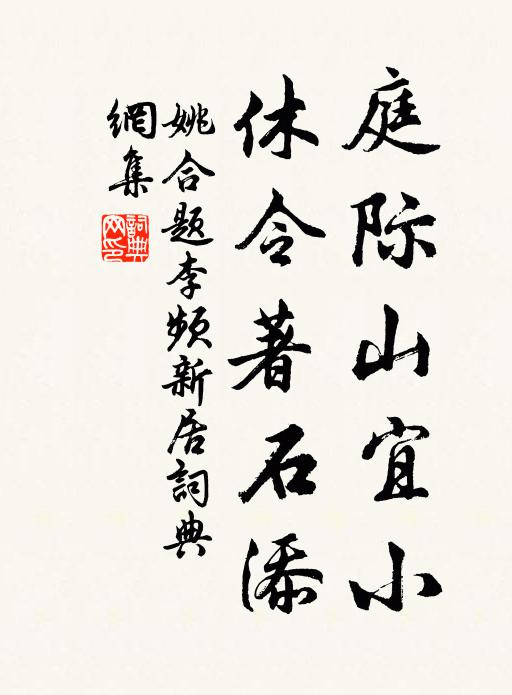 庭际山宜小
休令著石添
姚合题李频新居詞典
網集
詞典网印